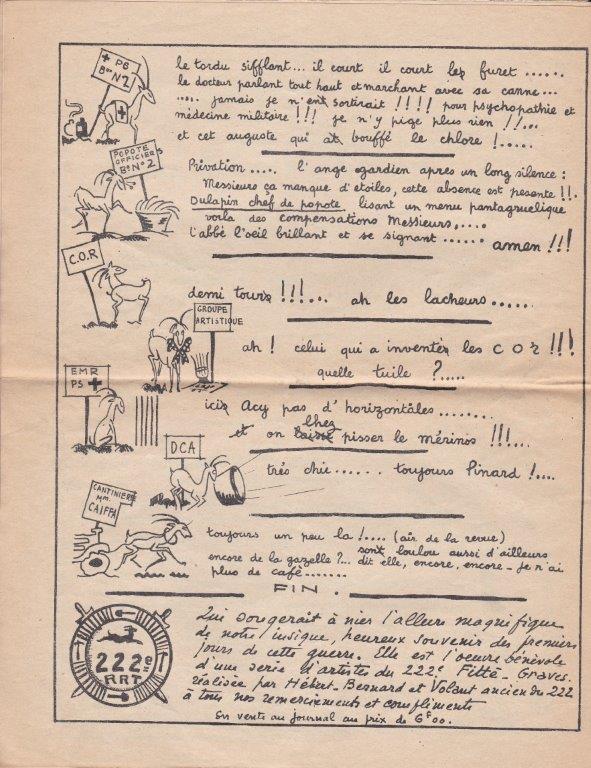 + PS
Bon N°2
le tordu sifflant... il court il court le furet ......
le docteur parlant tout haut et marchant avec sa canne...
..... jamais je n'en sortirait !!!! pour psychopathie et
médecine militaire !!! je n'y pige plus rien !!...
et cet auguste qui a bouffé le chlore !.....
POPOTE
OFFICIERS
Bon N°2
Privation ..... l'ange gardien apres un long silence :
Messieurs ça manque d'etoiles, cette absence est pesante !!.
Dulapin chef de popote lisant un menu pantagruelique
voila des compensations Messieurs,....
l'abbé l'oeil brillant et se signant ...... amen !!!
C.O.R
demi tour !!!... ah les lacheurs .....
GROUPE
ARTISTIQUE
ah ! celui qui a inventé les C O R !!!
quelle tuile ?.....
EMR
PS +
ici Acy pas d'horizontâles ........
et on chez pisser le mérinos !!!...
DCA
trés chic ...... toujours Pinard !....
CANTINIERE
Mme
CAIFFA
toujours un peu la !.... (air de la revue)
encore de la gazelle ?... sont loulou aussi d'ailleurs
dit elle, encore, encore - je n'ai
plus de café .......
FIN .
222e
RRT
Qui songerait à nier l'allure magnifique
de notre insigne, heureux souvenir des premiers
jours de cette guerre. Elle est l'oeuvre bénévole
d'une serie d'artistes du 222e Fitte - Graves.
réalisée par Hébert, Bernard et Volant ancien du 222
à tous nos remerciements et compliments
En vente au journal au prix de 6F00.